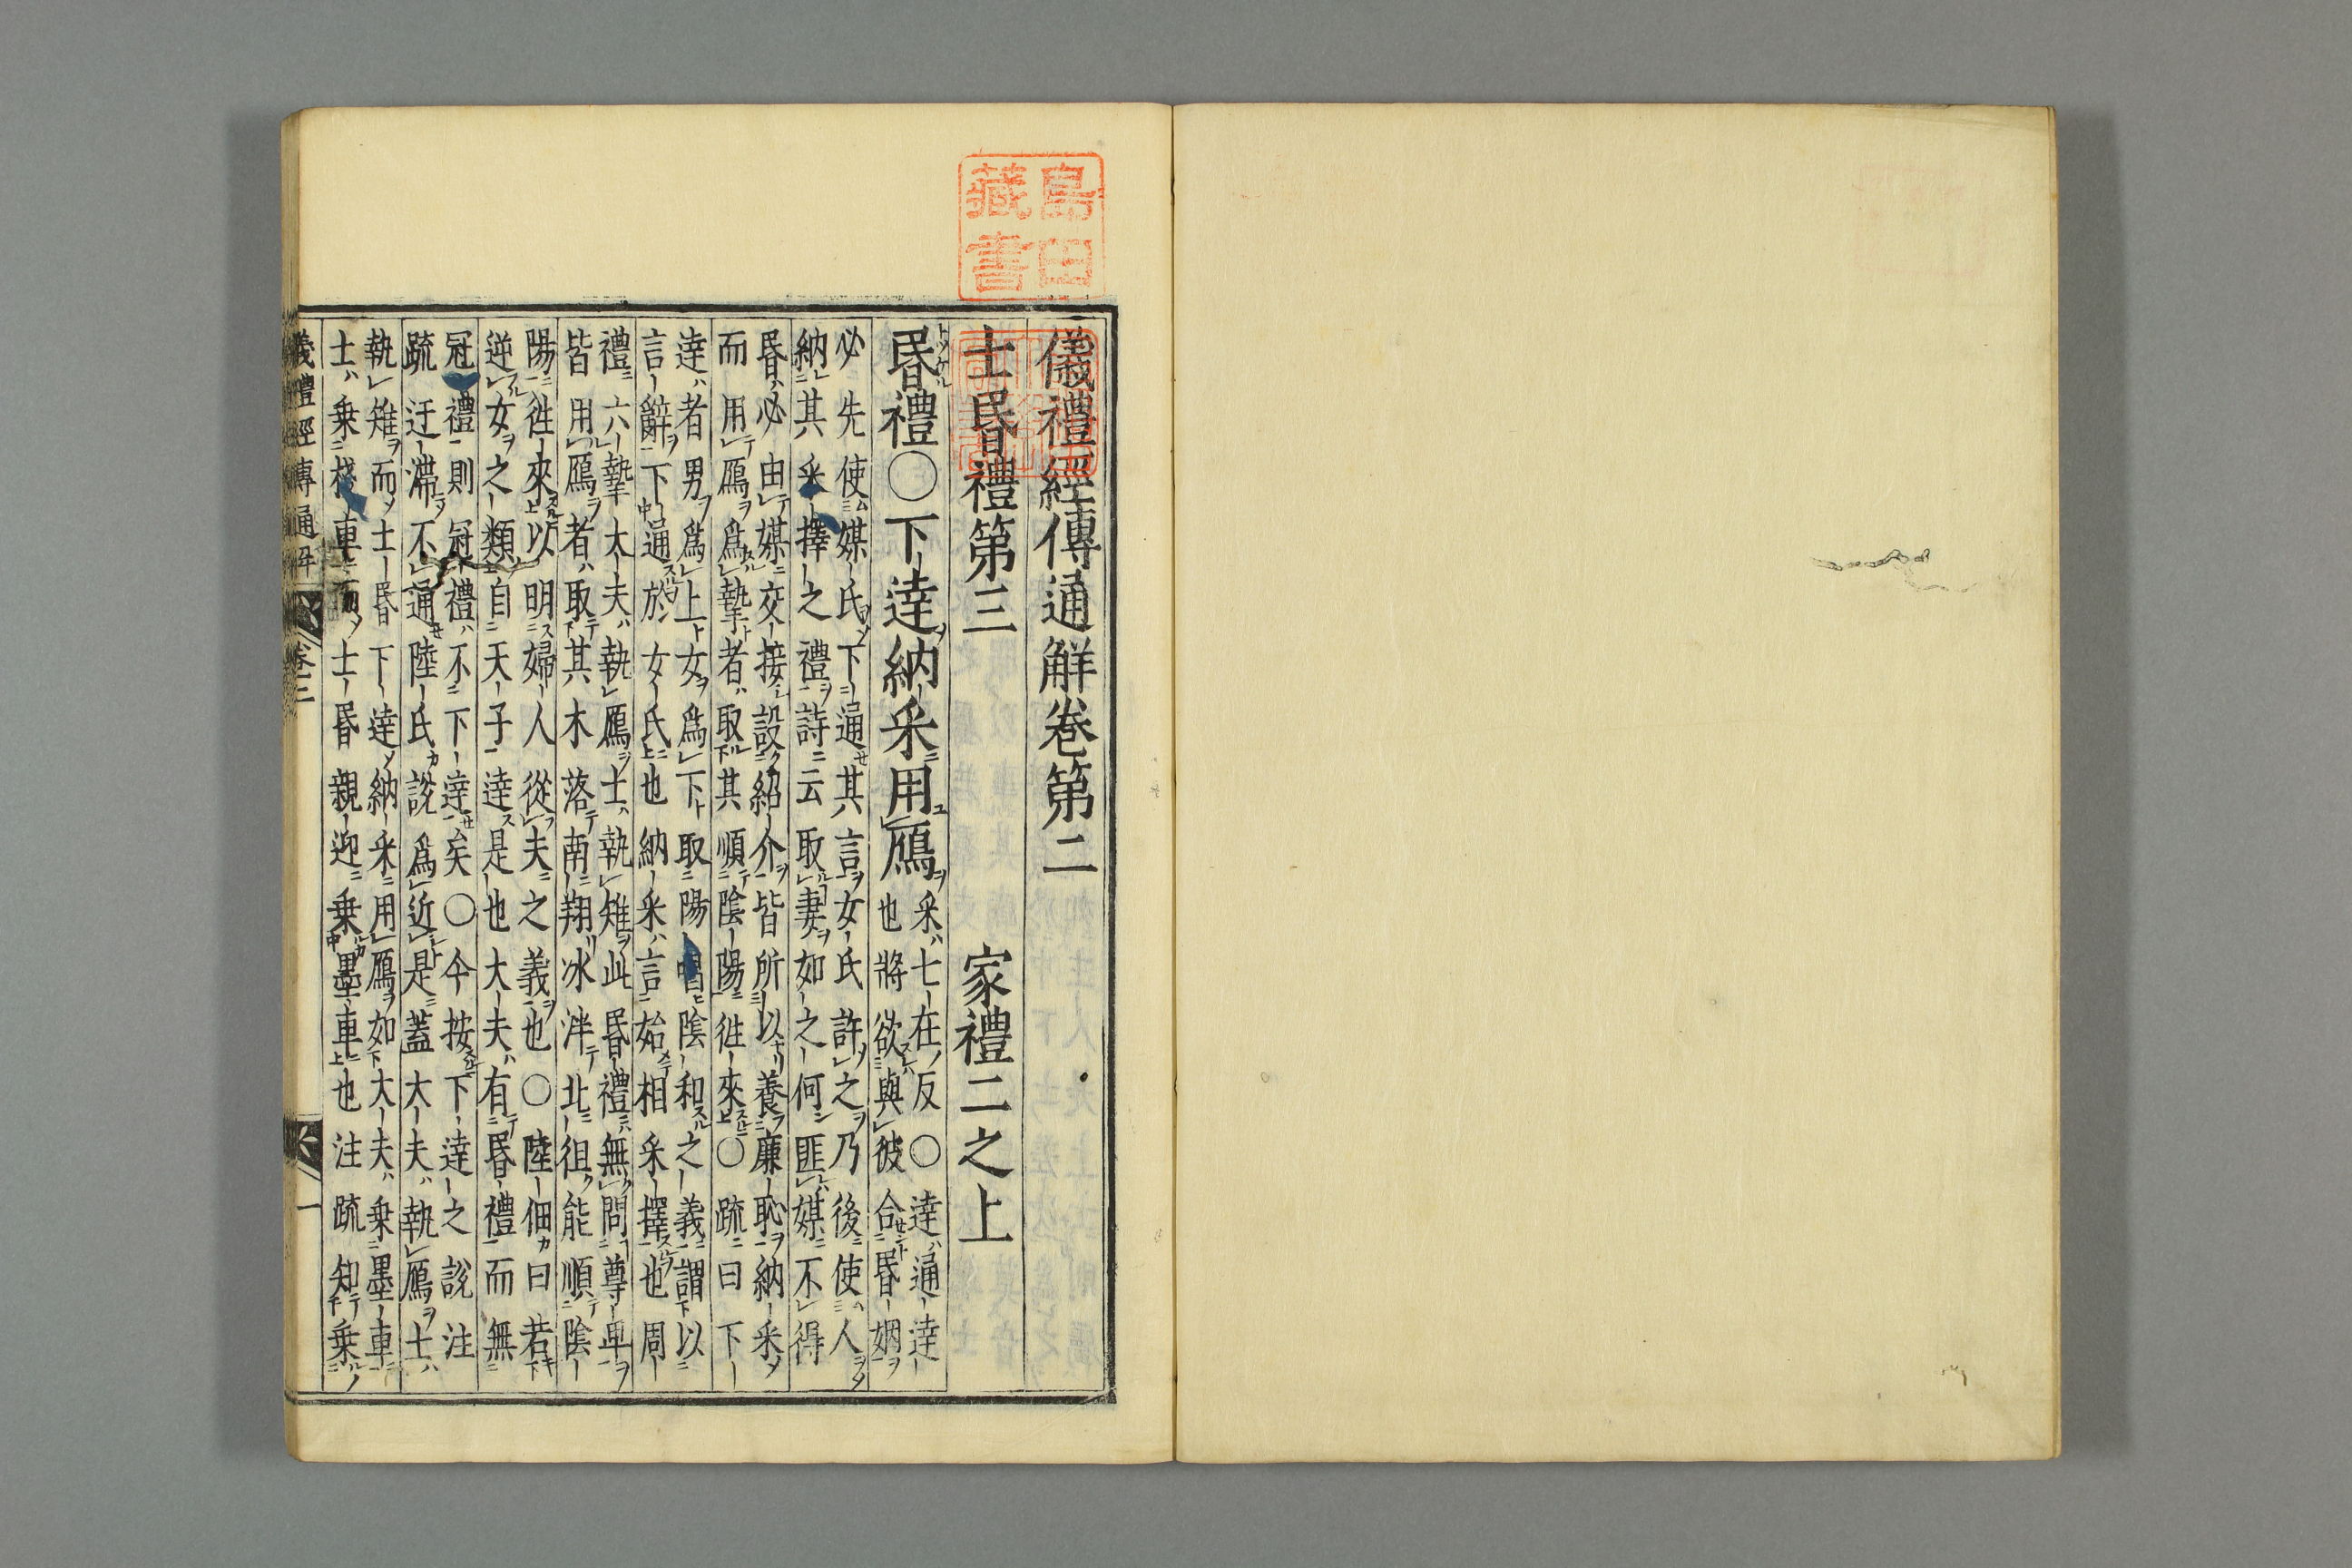 島田
藏書
儀禮經傳通解卷第二
士昬禮第三　家禮二之上
昬禮○下達納采用鴈
采七在反○達通達
也將欲與彼合昬姻
必先使媒氏下通其言女氏許之乃後使人
納其采擇之禮詩云取妻如之何匪媒不得
昬必由媒交接設紹介皆所以養廉恥納采
而用鴈爲摯者取其順陰陽徃來○疏曰下
達者男爲上女爲下取陽唱陰和之義謂以
言辭下通於女氏也納采言始相采擇也周
禮六摯大夫執鴈士執雉此昬禮無問尊卑
皆用鴈者取其木落南翔冰泮北徂能順陰
陽徃來以明婦人從夫之義也○陸佃曰若
逆女之類自天子達是也大夫有昬禮而無
冠禮則冠禮不下達矣○今按下達之說注
疏迂滯不通陸氏說爲近是蓋大夫執鴈士
執雉而士昬下達納采用鴈如大夫乗墨車
士乗棧車而士昬親迎乗墨車也注疏知乗
儀禮經傳通解　卷二　一